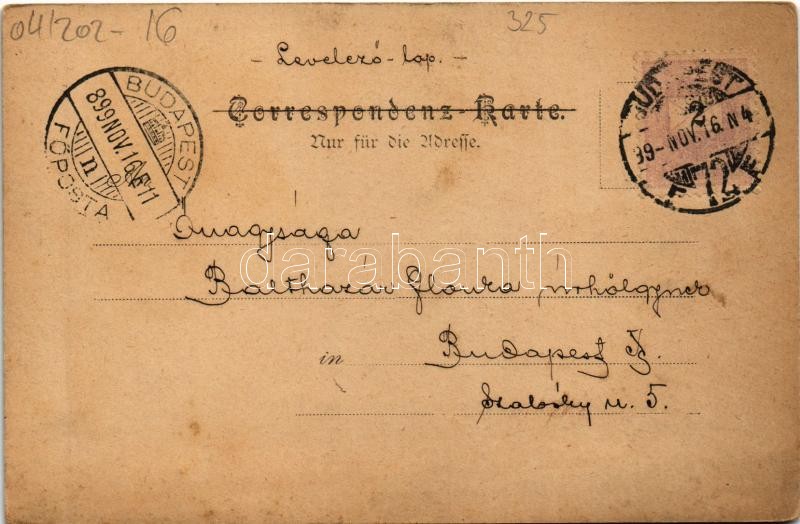 04/202-16
325
- Levelező-lap. -
Correspondenz-Karte.
Nur für die Adresse.
BUDAPEST
899 NOV. 16
n
FŐPOSTA
BUDAPEST
2
99-NOV. 16. N 4
72
Őnagysága
Balthazár Flórka úrhölgynek
in
Budapest
u. 5.
darabanth